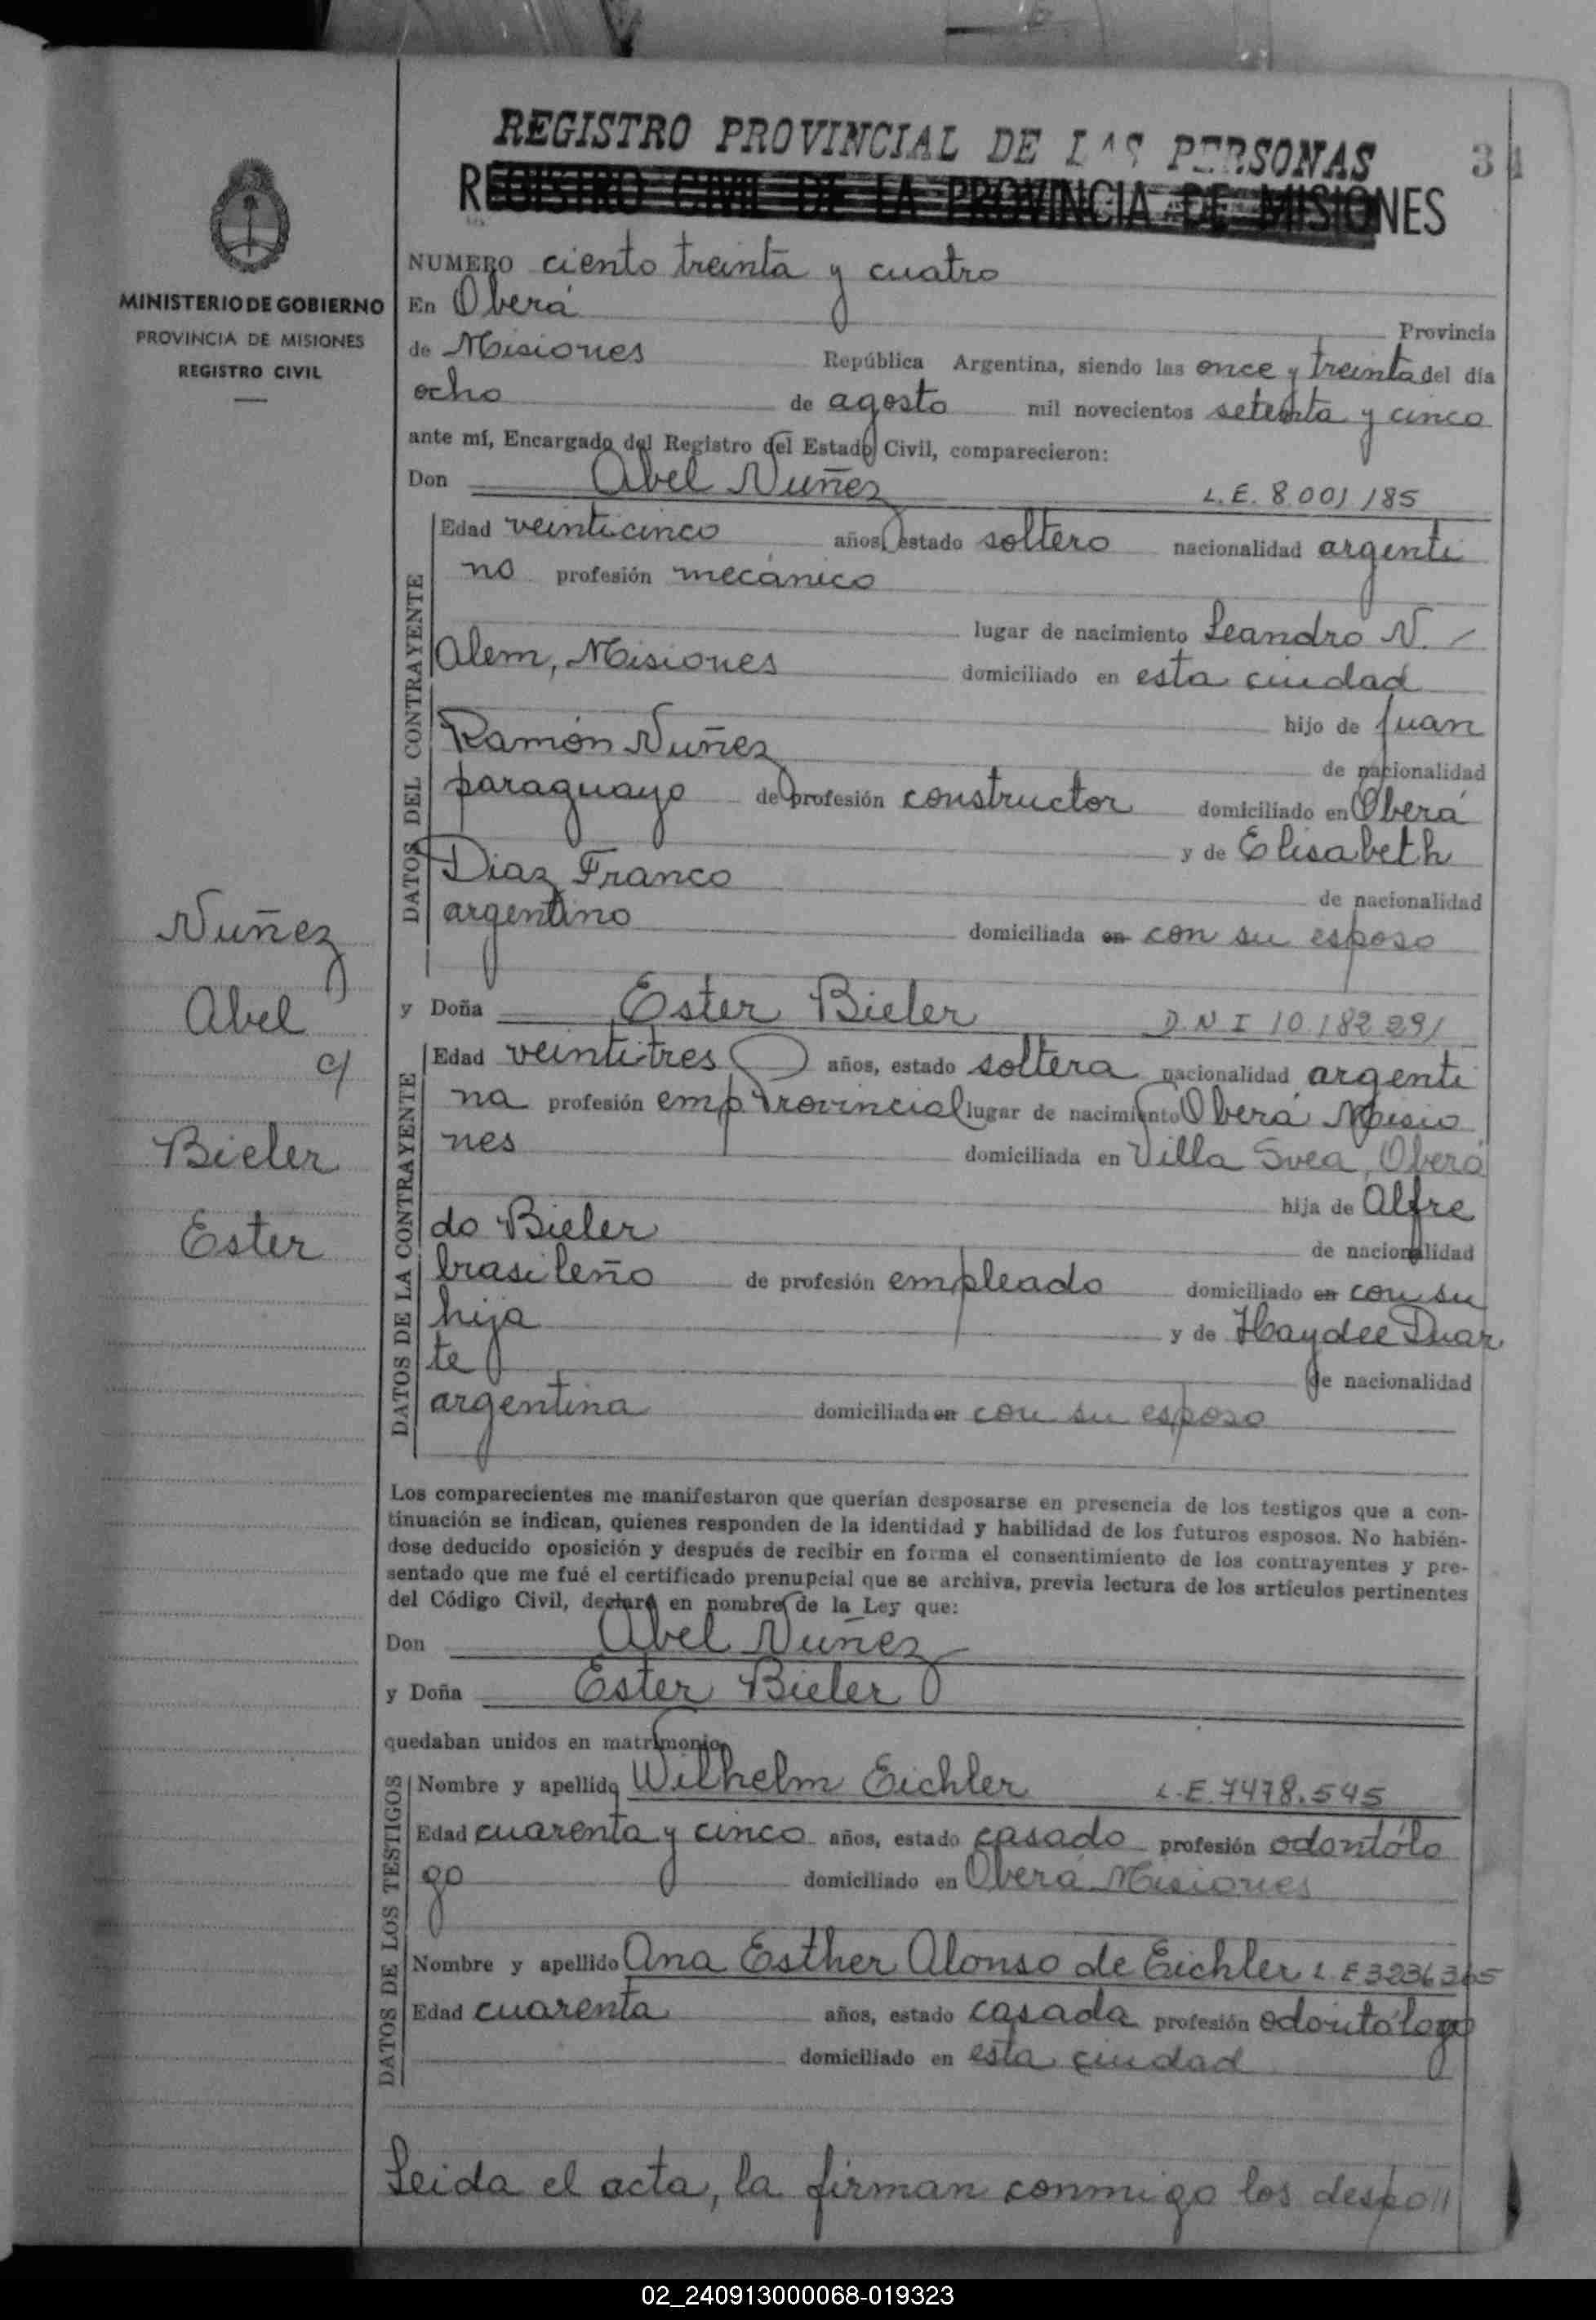 REGISTRO PROVINCIAL DE LAS PERSONAS
34
REGISTRO CIVIL DE LA PROVINCIA DE MISIONES
MINISTERIO DE GOBIERNO
PROVINCIA DE MISIONES
REGISTRO CIVIL
NUMERO ciento treinta y cuatro
En Oberá Provincia
de Misiones República Argentina, siendo las once y treinta del día
ocho de agosto mil novecientos setenta y cinco
ante mí, Encargado del Registro del Estado Civil, comparecieron:
Don Abel Nuñez L.E. 8.001.185
DATOS DEL CONTRAYENTE
Edad veinticinco años, estado soltero nacionalidad argenti
no profesión mecánico
lugar de nacimiento Leandro N.
Alem, Misiones domiciliado en esta ciudad
hijo de Juan
Ramón Nuñez de nacionalidad
paraguayo de profesión constructor domiciliado en Oberá
y de Elisabeth
Diaz Franco de nacionalidad
argentino domiciliada en con su esposo
Nuñez
Abel
c/
Bieler
Ester
y Doña Ester Bieler D.N.I 10.182.291
DATOS DE LA CONTRAYENTE
Edad veintitres años, estado soltera nacionalidad argenti
na profesión emp provincial lugar de nacimiento Oberá Misio
nes domiciliada en Villa Svea, Oberá
hija de Alfre
do Bieler de nacionalidad
brasileño de profesión empleado domiciliado en con su
hija y de Haydee Duar
te de nacionalidad
argentina domiciliada en con su esposo
Los comparecientes me manifestaron que querían desposarse en presencia de los testigos que a con-
tinuación se indican, quienes responden de la identidad y habilidad de los futuros esposos. No habién-
dose deducido oposición y después de recibir en forma el consentimiento de los contrayentes y pre-
sentado que me fué el certificado prenupcial que se archiva, previa lectura de los artículos pertinentes
del Código Civil, declaré en nombre de la Ley que:
Don Abel Nuñez
y Doña Ester Bieler
quedaban unidos en matrimonio.
DATOS DE LOS TESTIGOS
Nombre y apellido Wilhelm Eichler L.E. 7478.545
Edad cuarenta y cinco años, estado casado profesión odontólo
go domiciliado en Oberá Misiones
Nombre y apellido Ana Esther Alonso de Eichler L.E 3236365
Edad cuarenta años, estado casada profesión odontólogo
domiciliado en esta ciudad
Leida el acta, la firman conmigo los despo
02_240913000068-019323